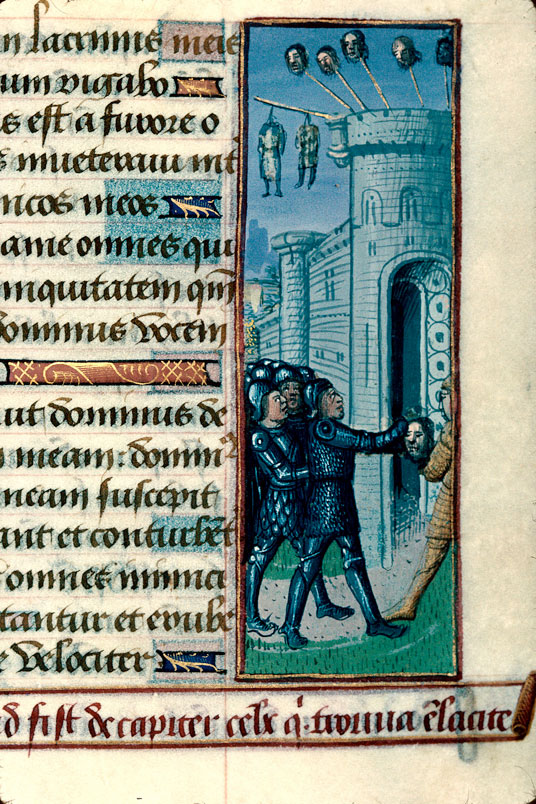 n lacrimis meis
um rigabo
s est a furore o
s inueteraui int
micos meos
a me omnes qui
iniquitatem qm̄
dominus vocem
uit dominus de
m meam: domin9
meam suscepit
ant et conturbent̄
omnes inimici
tantur et erube
e velociter
d fist decapiter celx q̄ trouua ē la cite